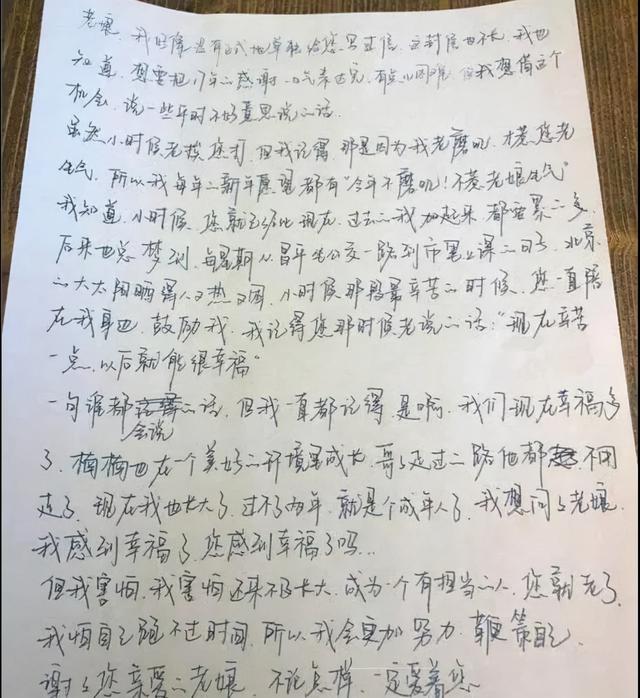 老娘，我好像没有正式地单独给您写过信，这封信也不长，我也
知道，想要把17年的感谢一口气表达完，有点儿困难，但我想借这个
机会，说一些平时不好意思说的话.
虽然小时候老挨您打，但我记得，那是因为我老磨叽，才惹您老
生气，所以我每年的新年愿望都有"今年不磨叽！不惹老娘生气"
我知道，小时候，您就已经比现在、过去的我加起来都要累的多，
后来也总梦到，每星期从昌平坐公交一路到市里上课的日子，北京
的大太阳晒得人又热又困，小时候那段最辛苦的时候，您一直陪
在我身边，鼓励我，我记得您那时候老说的话："现在辛苦
一点，以后就能很幸福"
一句谁都会说的话，但我一直都记得 是啊，我们现在幸福多
了，楠楠也在一个美好的环境里成长，哥哥走过的路他都不用
走了，现在我也长大了，过不了两年，就是个成年人了，我想问问老娘，
我感到幸福了，您感到幸福了吗...
但我害怕，我害怕还来不及长大，成为一个有担当的人，您就老了，
我怕自己跑不过时间，所以我会更加努力，鞭策自己，
谢谢您亲爱的老娘，不论怎样，一定爱着您